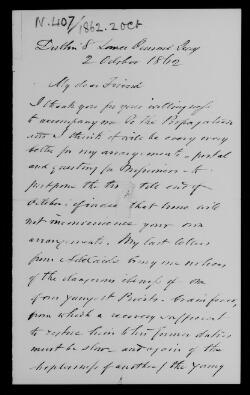 N. 407/1862. 2 Oct
Dublin 8 Lower Ormond Quay
2 October 1862
My dear Friend
I thank you for your willingness
to accompany me to the Propaganda
I think it will be every way
better for my arrangements - postal
and questing for Missioners - to
postpone the till end of
October if indeed that time will
not inconvenience your own
arrangements. My last letters
from Adelaide bring me notices
of the dangerous illness of one
of our young Priests - brain fever,
from which a recovery sufficient
to restore him to his former duties
must be slow and again of the
hopelessness of another (the young